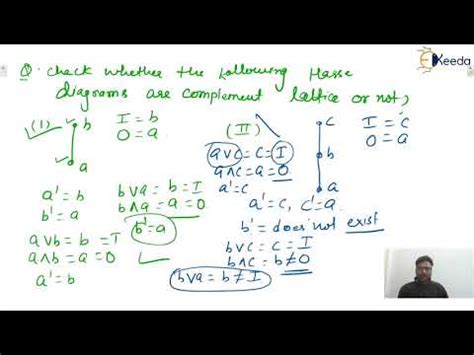 Keeda
Q. check whether the following Hasse
diagrams are complement lattice or not,
(I)
b
a
I = b
0 = a
a' = b
b' = a
a∨b = b = I
a∧b = a = 0
a' = b
b∨a = b = I
b∧a = a = 0
b' = a
(II)
a∨c = c = I
a∧c = a = 0
a' = c
c
b
a
I = c
0 = a
a' = c, c' = a.
b' = does not exist
b∨c = c = I
b∧c = b ≠ 0
b∨a = b ≠ I